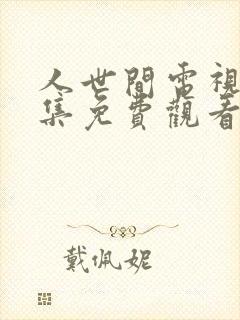 人世間電視
集免費觀看
戴佩妮